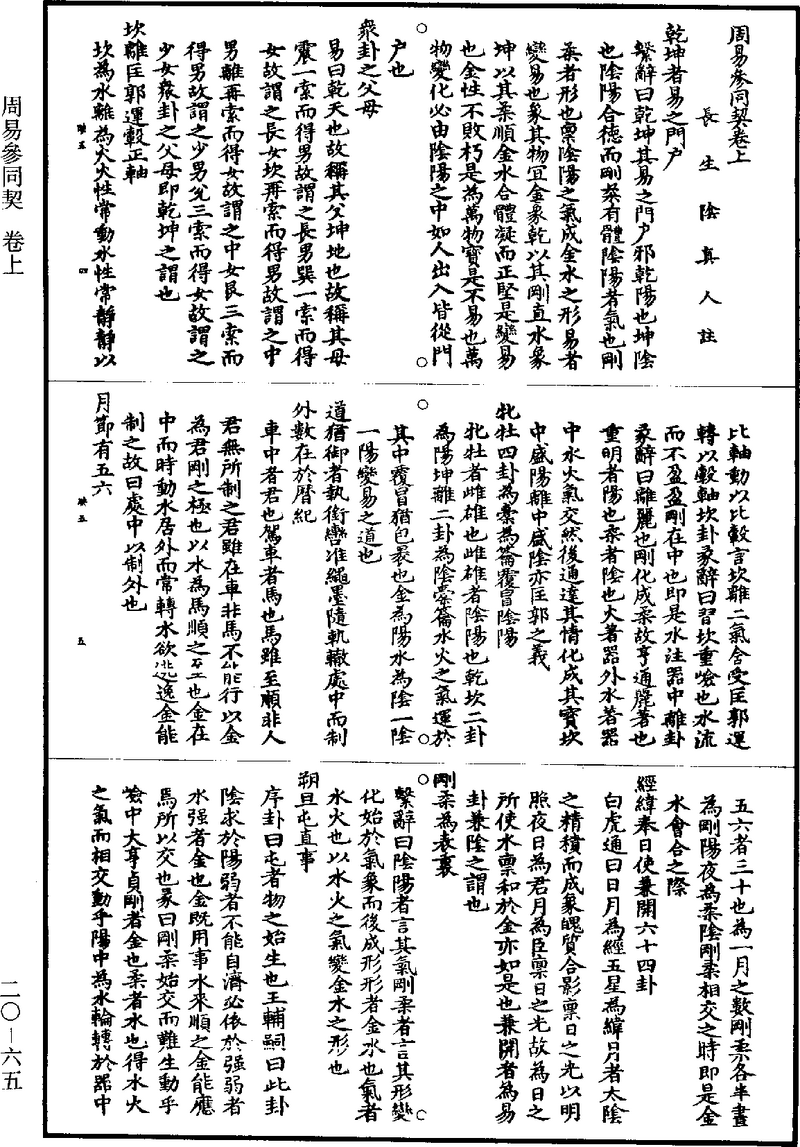 周易參同契卷上
長生陰真人註
乾坤者易之門戶
繫辭曰乾坤其易之門戶邪乾陽也坤陰
也陰陽合德而剛柔有體陰陽者氣也剛
柔者形也稟陰陽之氣成金水之形易者
變易也象其物宜金象乾以其剛直水象
坤以其柔順金水合體凝而正堅是變易
也金性不敗朽是為萬物寶是不易也萬
物變化必由陰陽之中如人出入皆從門
戶也
眾卦之父母
易曰乾天也故稱其父坤地也故稱其母
震一索而得男故謂之長男巽一索而得
女故謂之長女坎再索而得男故謂之中
男離再索而得女故謂之中女艮三索而
得男故謂之少男兌三索而得女故謂之
少女眾卦之父母即乾坤之謂也
坎離匡郭運轂正軸
坎為水離為火火性常動水性常靜靜以
比軸動以比轂言坎離二氣含受匡郭運
轉以轂軸坎卦彖辭曰習坎重嶮也水流
而不盈盈剛在中也即是水注器中離卦
彖辭曰離麗也剛化成柔故亨通麗著也
重明者陽也柔者陰也火著器外水著器
中水火氣交然後通達其情化成其寶坎
中盛陽離中盛陰亦匡郭之義
牝牡四卦為橐籥覆冒陰陽
牝牡者雌雄也雌雄者陰陽也乾坎二卦
為陽坤離二卦為陰橐籥水火之氣運於
其中覆冒猶包裹也金為陽水為陰一陰
一陽變易之道也
道猶御者執銜轡准繩墨隨軌轍處中而制
外數在於曆紀
車中者君也駕車者馬也馬雖至順非人
君無所制之君雖在車非馬不能行以金
為君剛之極也以水為馬順之至也金在
中而時動水居外而常轉水欲逃逸金能
制之故曰處中以制外也
月節有五六
五六者三十也為一月之數剛柔各半晝
為剛陽夜為柔陰剛柔相交之時即是金
水會合之際
經緯奉日使兼開六十四卦
白虎通曰日月為經五星為緯月者太陰
之精積而成象魄質合影稟日之光以明
照夜日為君月為臣稟日之光故為日之
所使水稟和於金亦如是也兼開者為易
卦兼陰之謂也
剛柔為表裏
繫辭曰陰陽者言其氣剛柔者言其形變
化始於氣象而後成形形者金水也氣者
水火也以水火之氣變金水之形也
朔旦屯直事
序卦曰屯者物之始生也王輔嗣曰此卦
陰求於陽弱者不能自濟必依於強弱者
水強者金也金既用事水來順之金能應
焉所以交也彖曰剛柔始交而難生動乎
嶮中大亨貞剛者金也柔者水也得水火
之氣而相交動乎陽中為水輪轉於器中
周易參同契 卷上
二〇－六五